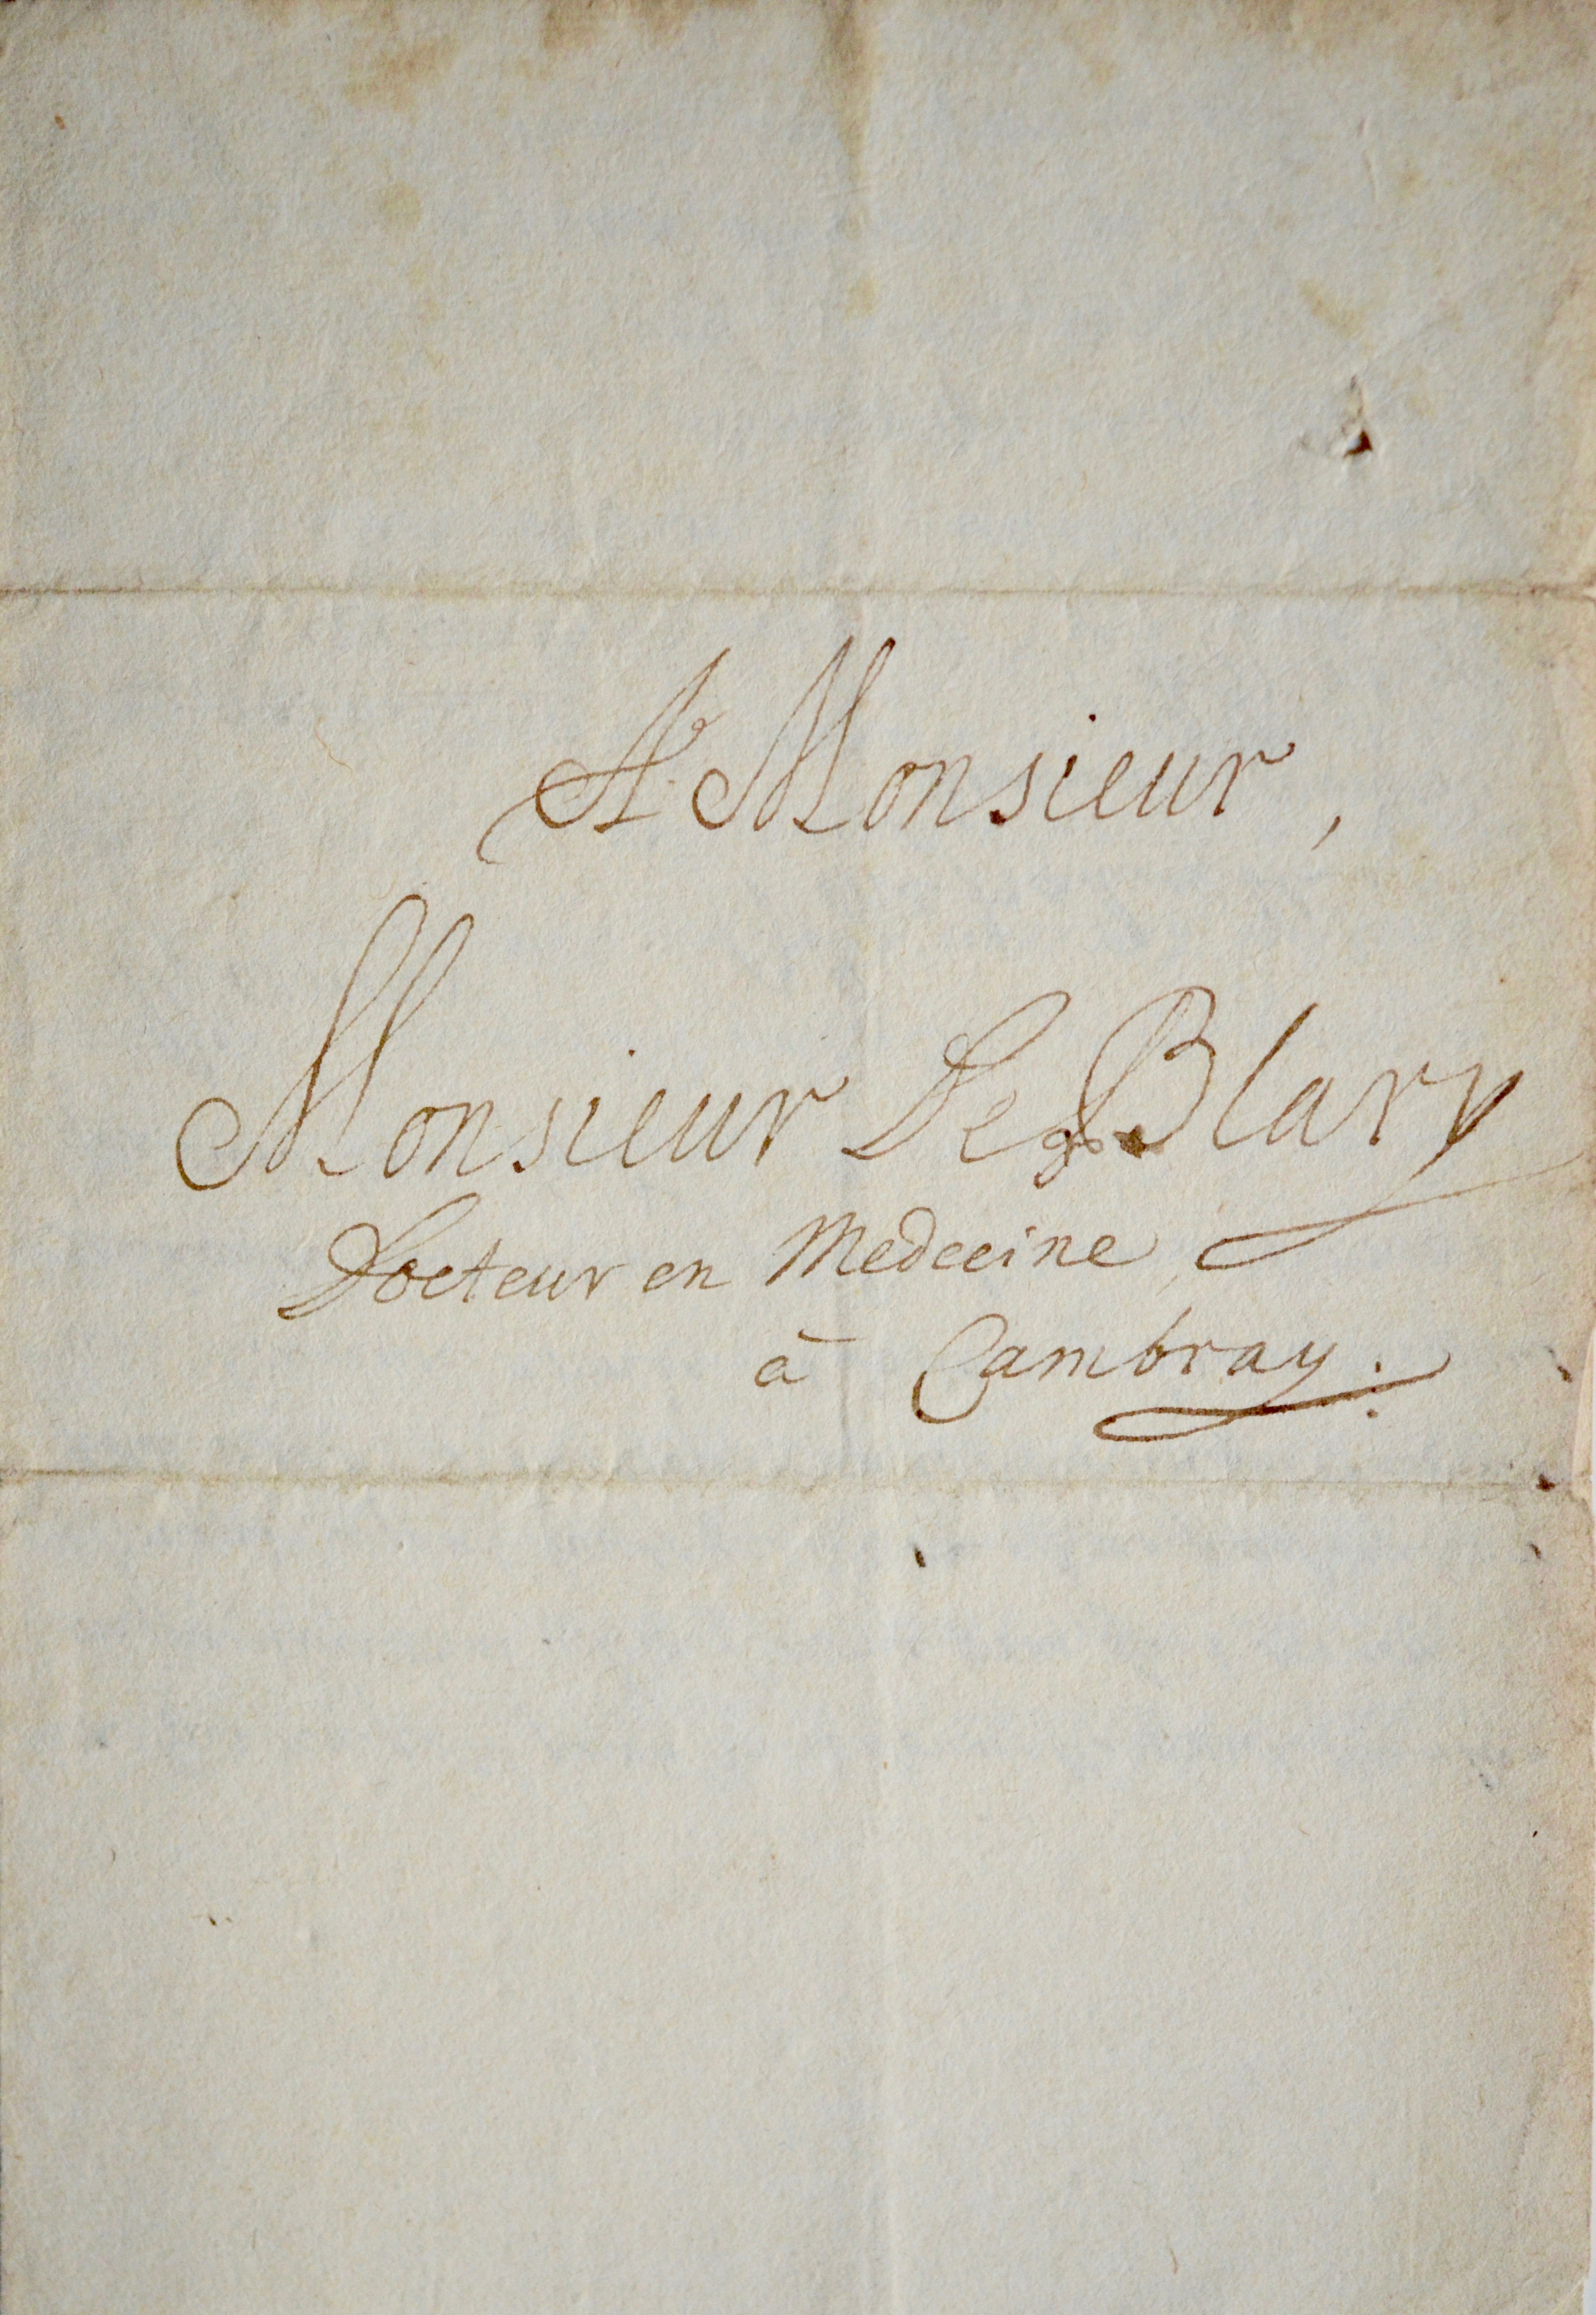 A Monsieur,
Monsieur De Blary
Docteur en Medecine
à Cambray.